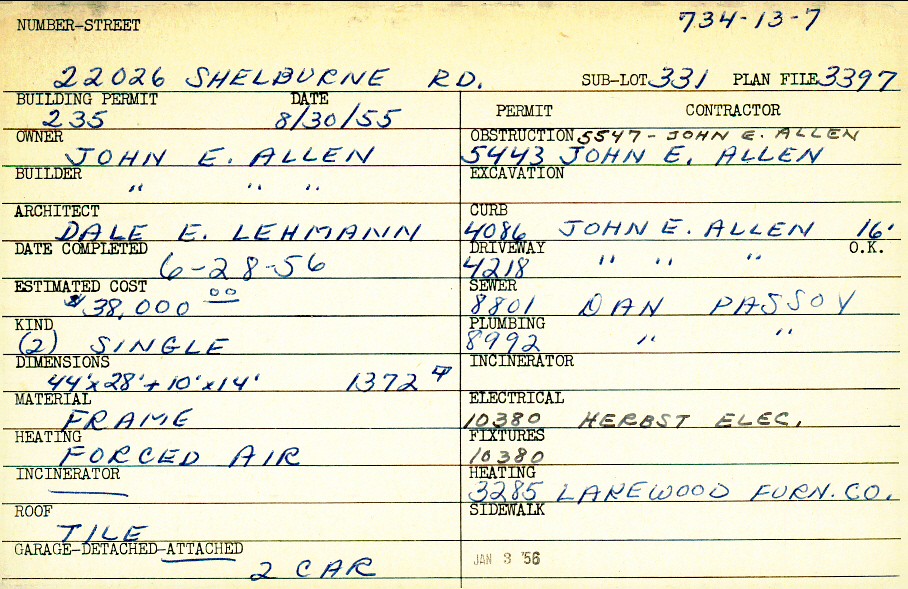 734-13-7
NUMBER-STREET
22026 SHELBURNE RD. SUB-LOT 331 PLAN FILE 3397
BUILDING PERMIT DATE
235 8/30/55
OWNER
JOHN E. ALLEN
BUILDER
" " "
ARCHITECT
DALE E. LEHMANN
DATE COMPLETED
6-28-56
ESTIMATED COST
$38,000 00
KIND
(2) SINGLE
DIMENSIONS
44'x28'+10'x14' 1372
MATERIAL
FRAME
HEATING
FORCED AIR
INCINERATOR
ROOF
TILE
GARAGE-DETACHED-ATTACHED
2 CAR
PERMIT CONTRACTOR
OBSTRUCTION 5547 - JOHN E. ALLEN
5443 JOHN E. ALLEN
EXCAVATION
CURB
4086 JOHN E. ALLEN 16'
DRIVEWAY O.K.
4218 " " "
SEWER
8801 DAN PASSOV
PLUMBING
8992 " "
INCINERATOR
ELECTRICAL
10380 HERBST ELEC.
FIXTURES
10380
HEATING
3285 LAKEWOOD FURN. CO.
SIDEWALK
JAN 3 '56